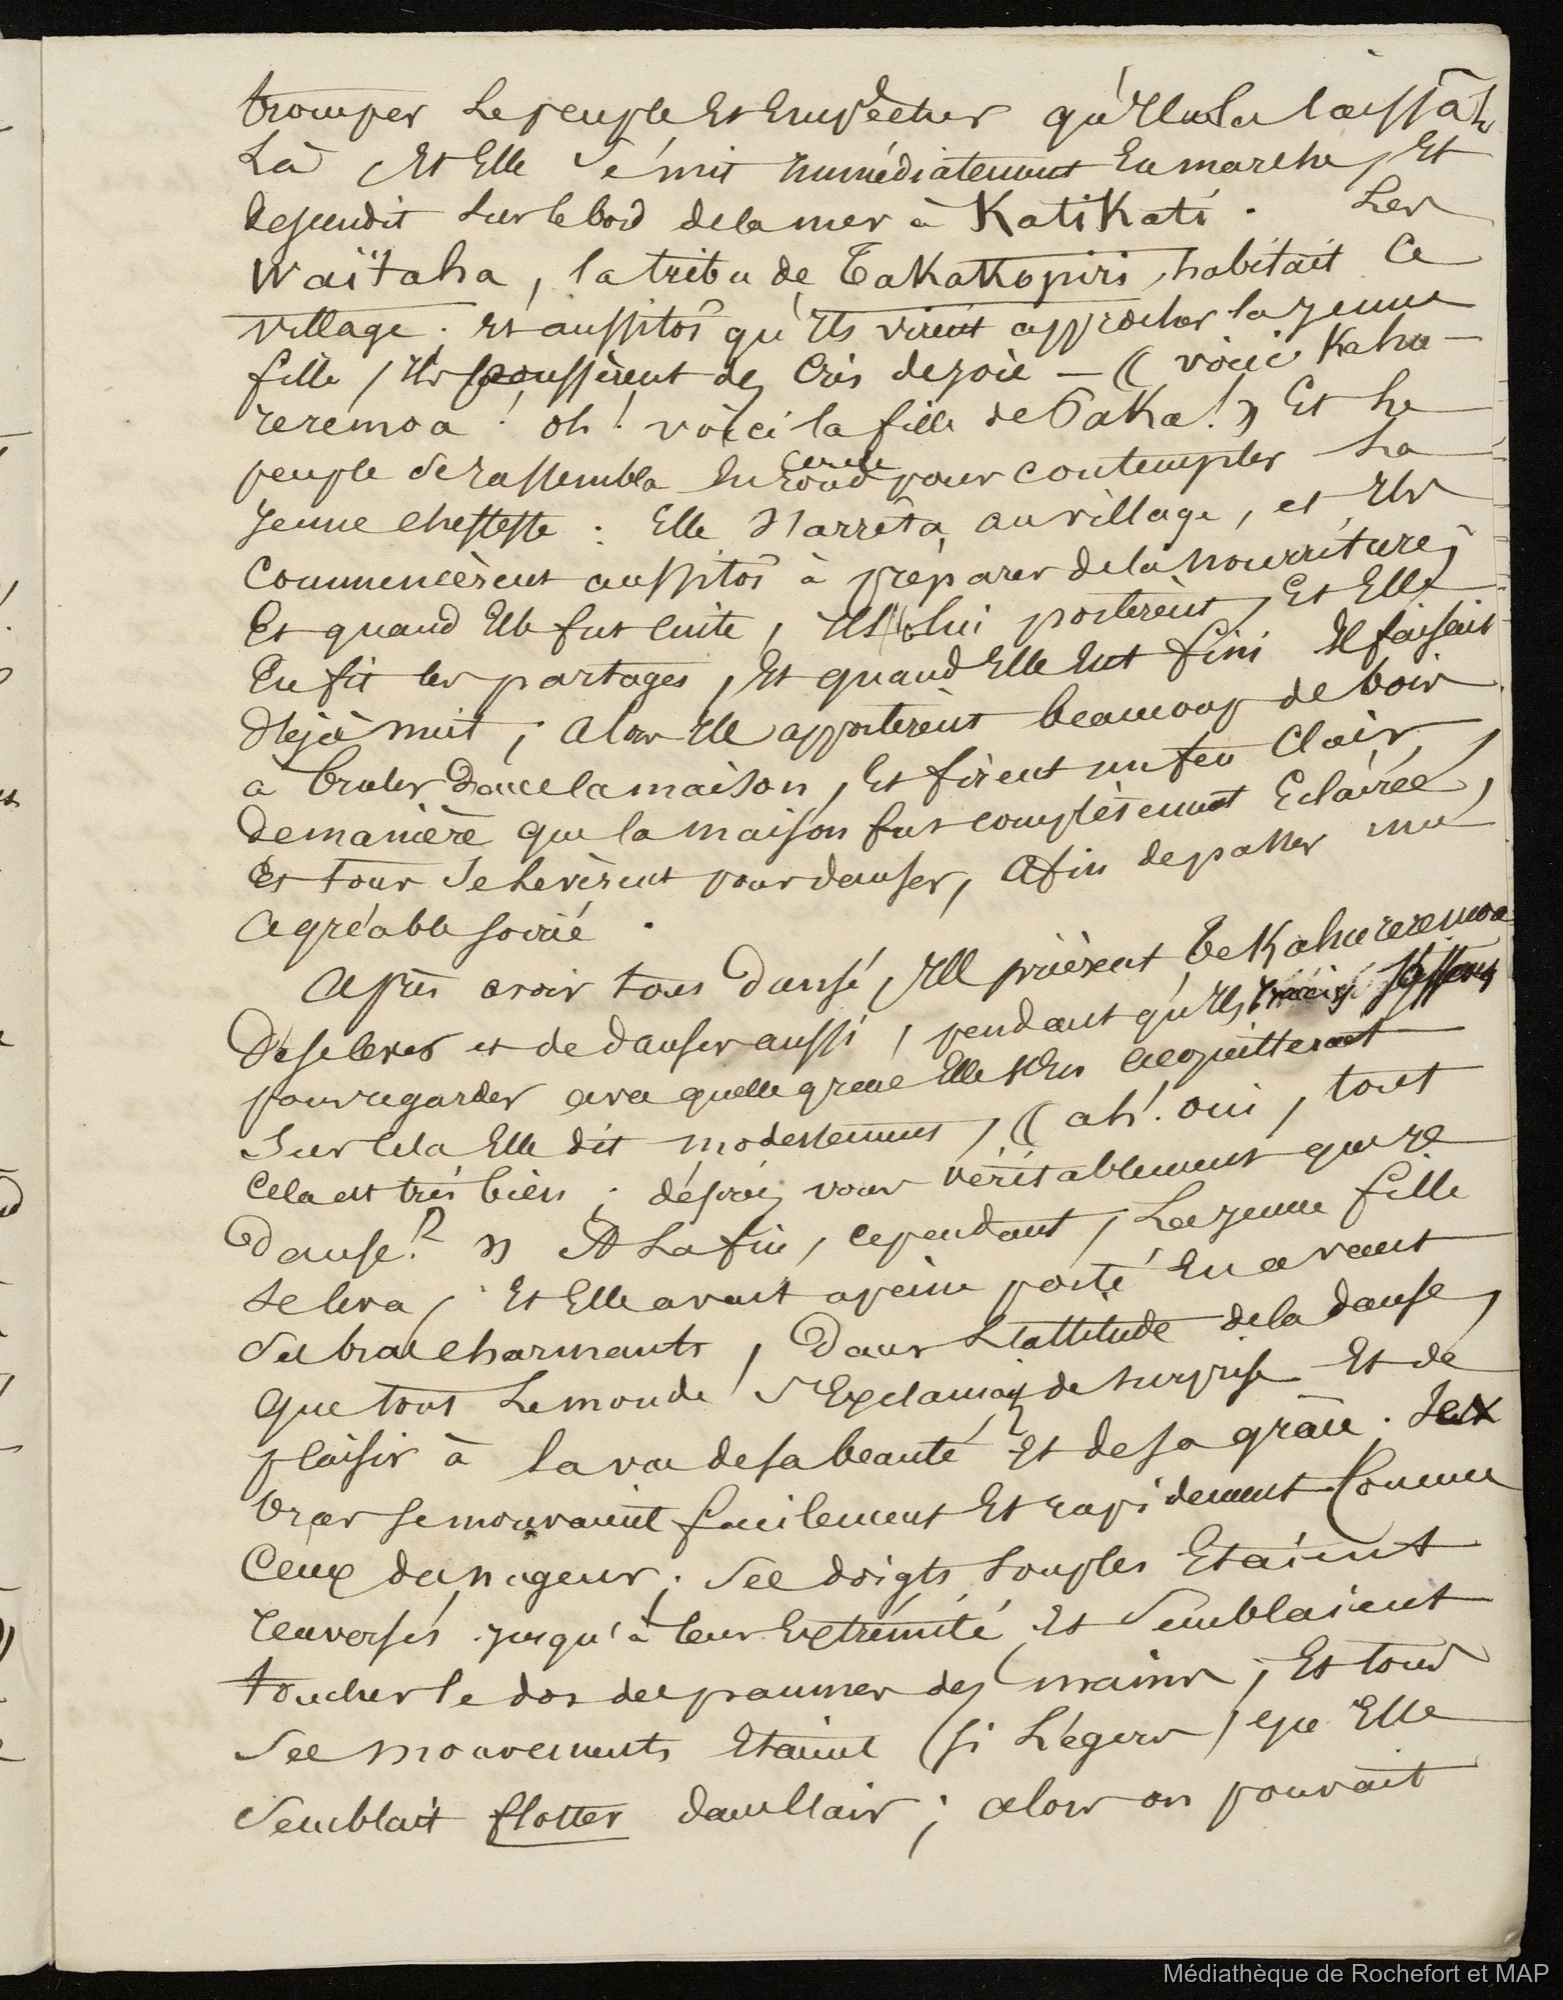 tromper le peuple et empêcher qu'Ilnela laissât
Là et Elle se mit immédiatement en marche, Et
descendit sur le bord de la mer à KatiKati. Les
Waïtaha, la tribu de TakaKopiri, habitait ce
village; et aussitôt qu'Ils virent approcher la jeune
fille, Ils poussèrent des cris de joie — « voici Kahu-
reremoa! oh! voici la fille de PaKa! » Et le
peuple se rassembla en rond cercle pour contempler la
jeune cheffesse: Elle s'arrêta au village, et Ils
commencèrent aussitôt à préparer de la nourriture;
Et quand Elle fut cuite, Ils lui portèrent, Et Elle
En fit les partages, Et quand Elle eut fini Il faisait
déjà nuit; alors Ils apportèrent beaucoup de bois
à bruler dans la maison, Et firent un feu clair,
de manière que la maison fut complètement Eclairée,
Et tous se levèrent pour danser, afin de passer une
agréable soirée.
Après avoir tous dansé, Ils prièrent Te Kahureremoa
De se lever et de danser aussi, pendant qu'Ils
pour regarder avec quelle grace Elle s'En acquitterait
Sur cela Elle dit modestement, « ah! oui, tout
cela est très bien; désirez vous véritablement que je
danse!? » A la fin, cependant, La jeune fille
se leva, Et Elle avait à peine porté En avant
ses bras charmants, Dans L'attitude de la danse,
que tout Le monde s'Exclamait de surprise Et de
plaisir à la vue de sa beauté Et de sa grâce. Ses
bras se mouvaient facilement Et rapidement Comme
ceux du nageur; ses doigts souples Etaient
renversés jusqu'à leur Extrémité Et semblaient
toucher le dos des paumes des mains; Et tous
ses mouvements Etaient si Légers, que Elle
semblait flotter dans l'air; alors on pouvait
Médiathèque de Rochefort et MAP